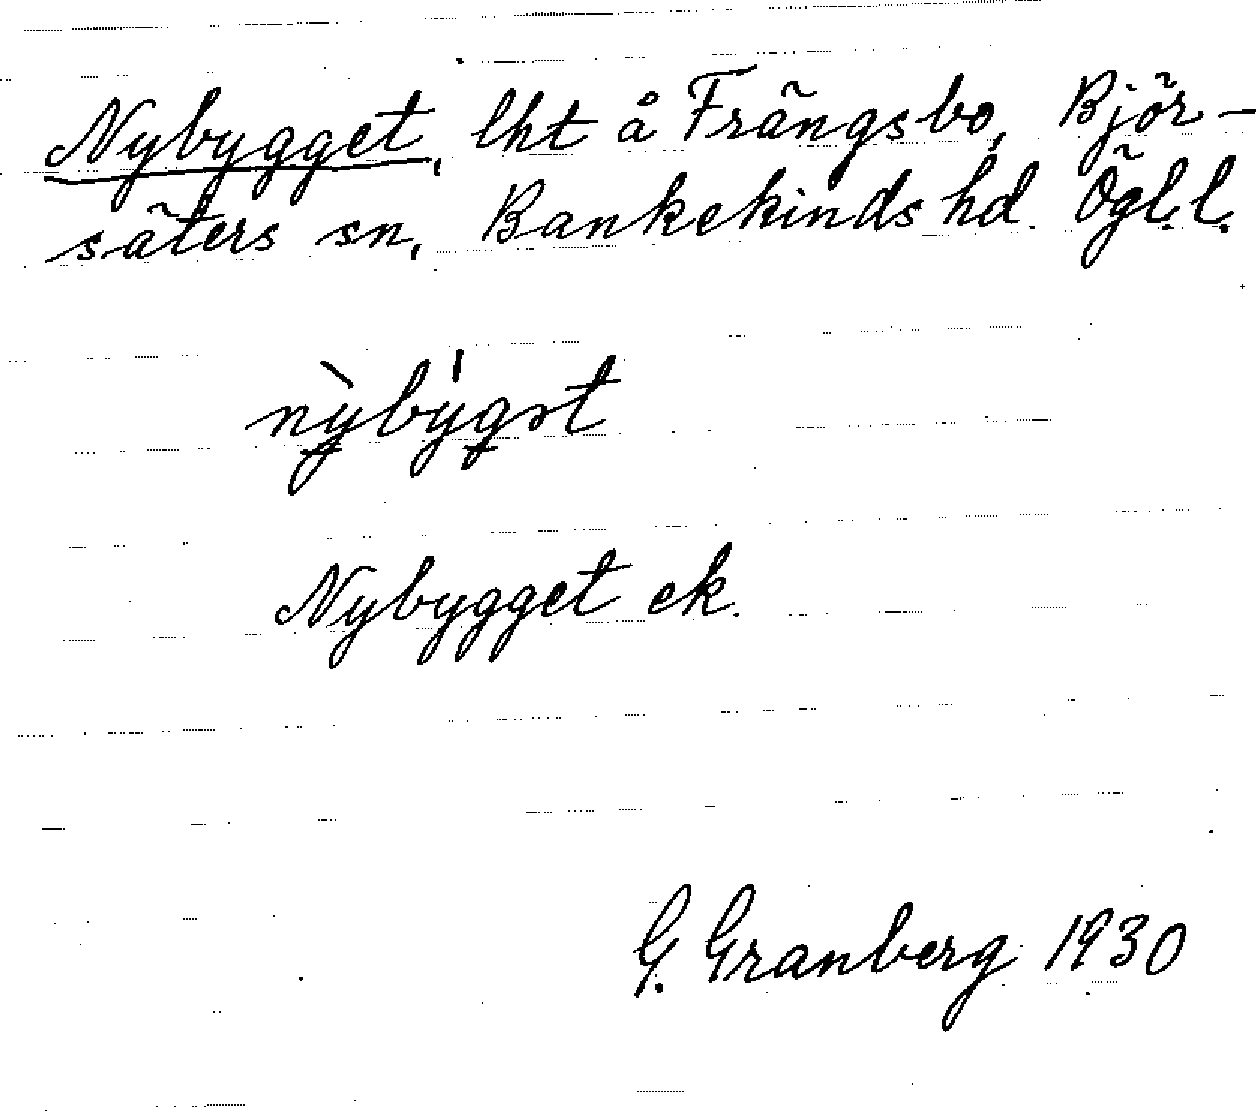 Nybygget, lht å Frängsbo, Björ-
säters sn, Bankekinds hd Ögl. l.
nỳbýgət
Nybygget ek.
G. Granberg 1930